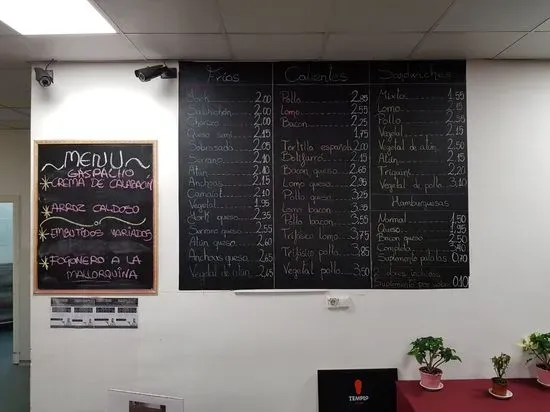 MENU
GASPACHO
CREMA DE CALABACÍN
ARROZ CALDOSO
or
EMBUTIDOS VARIADOS
FOGONERO A LA
MALLORQUINA
Fríos
York 2.00
Salchichón 2.00
Chorizo 2.00
Queso semi 2.15
Sobrasada 2.05
Serrano 2.10
Atún 2.10
Anchoas 2.15
Camaiot 2.10
Vegetal 1.95
York queso 2.35
Serrano queso 2.55
Atún queso 2.60
Anchoas queso 2.65
Vegetal de atún 2.65
Calientes
Pollo 2.85
Lomo 2.55
Bacon 2.25
1.75
Tortilla española 2.00
Botifarró 2.00
Bacon queso 2.65
Lomo queso 2.95
Pollo queso 3.25
Lomo bacon 3.35
Pollo bacon 3.55
Trifásico lomo 3.75
Trifásico pollo 3.85
Vegetal pollo 3.50
Sandwiches
Mixto 1.55
Lomo 2.15
Pollo 2.35
Vegetal 2.15
Vegetal de atún 2.50
Atún 2.15
Triquini 2.20
Vegetal de pollo 3.10
Hamburguesas
Normal 1.50
Queso 1.95
Bacon queso 2.50
Completa 3.40
Suplemento patatas 0.70
Sobres
Suplemento por sobre 0.10
TEMPLO